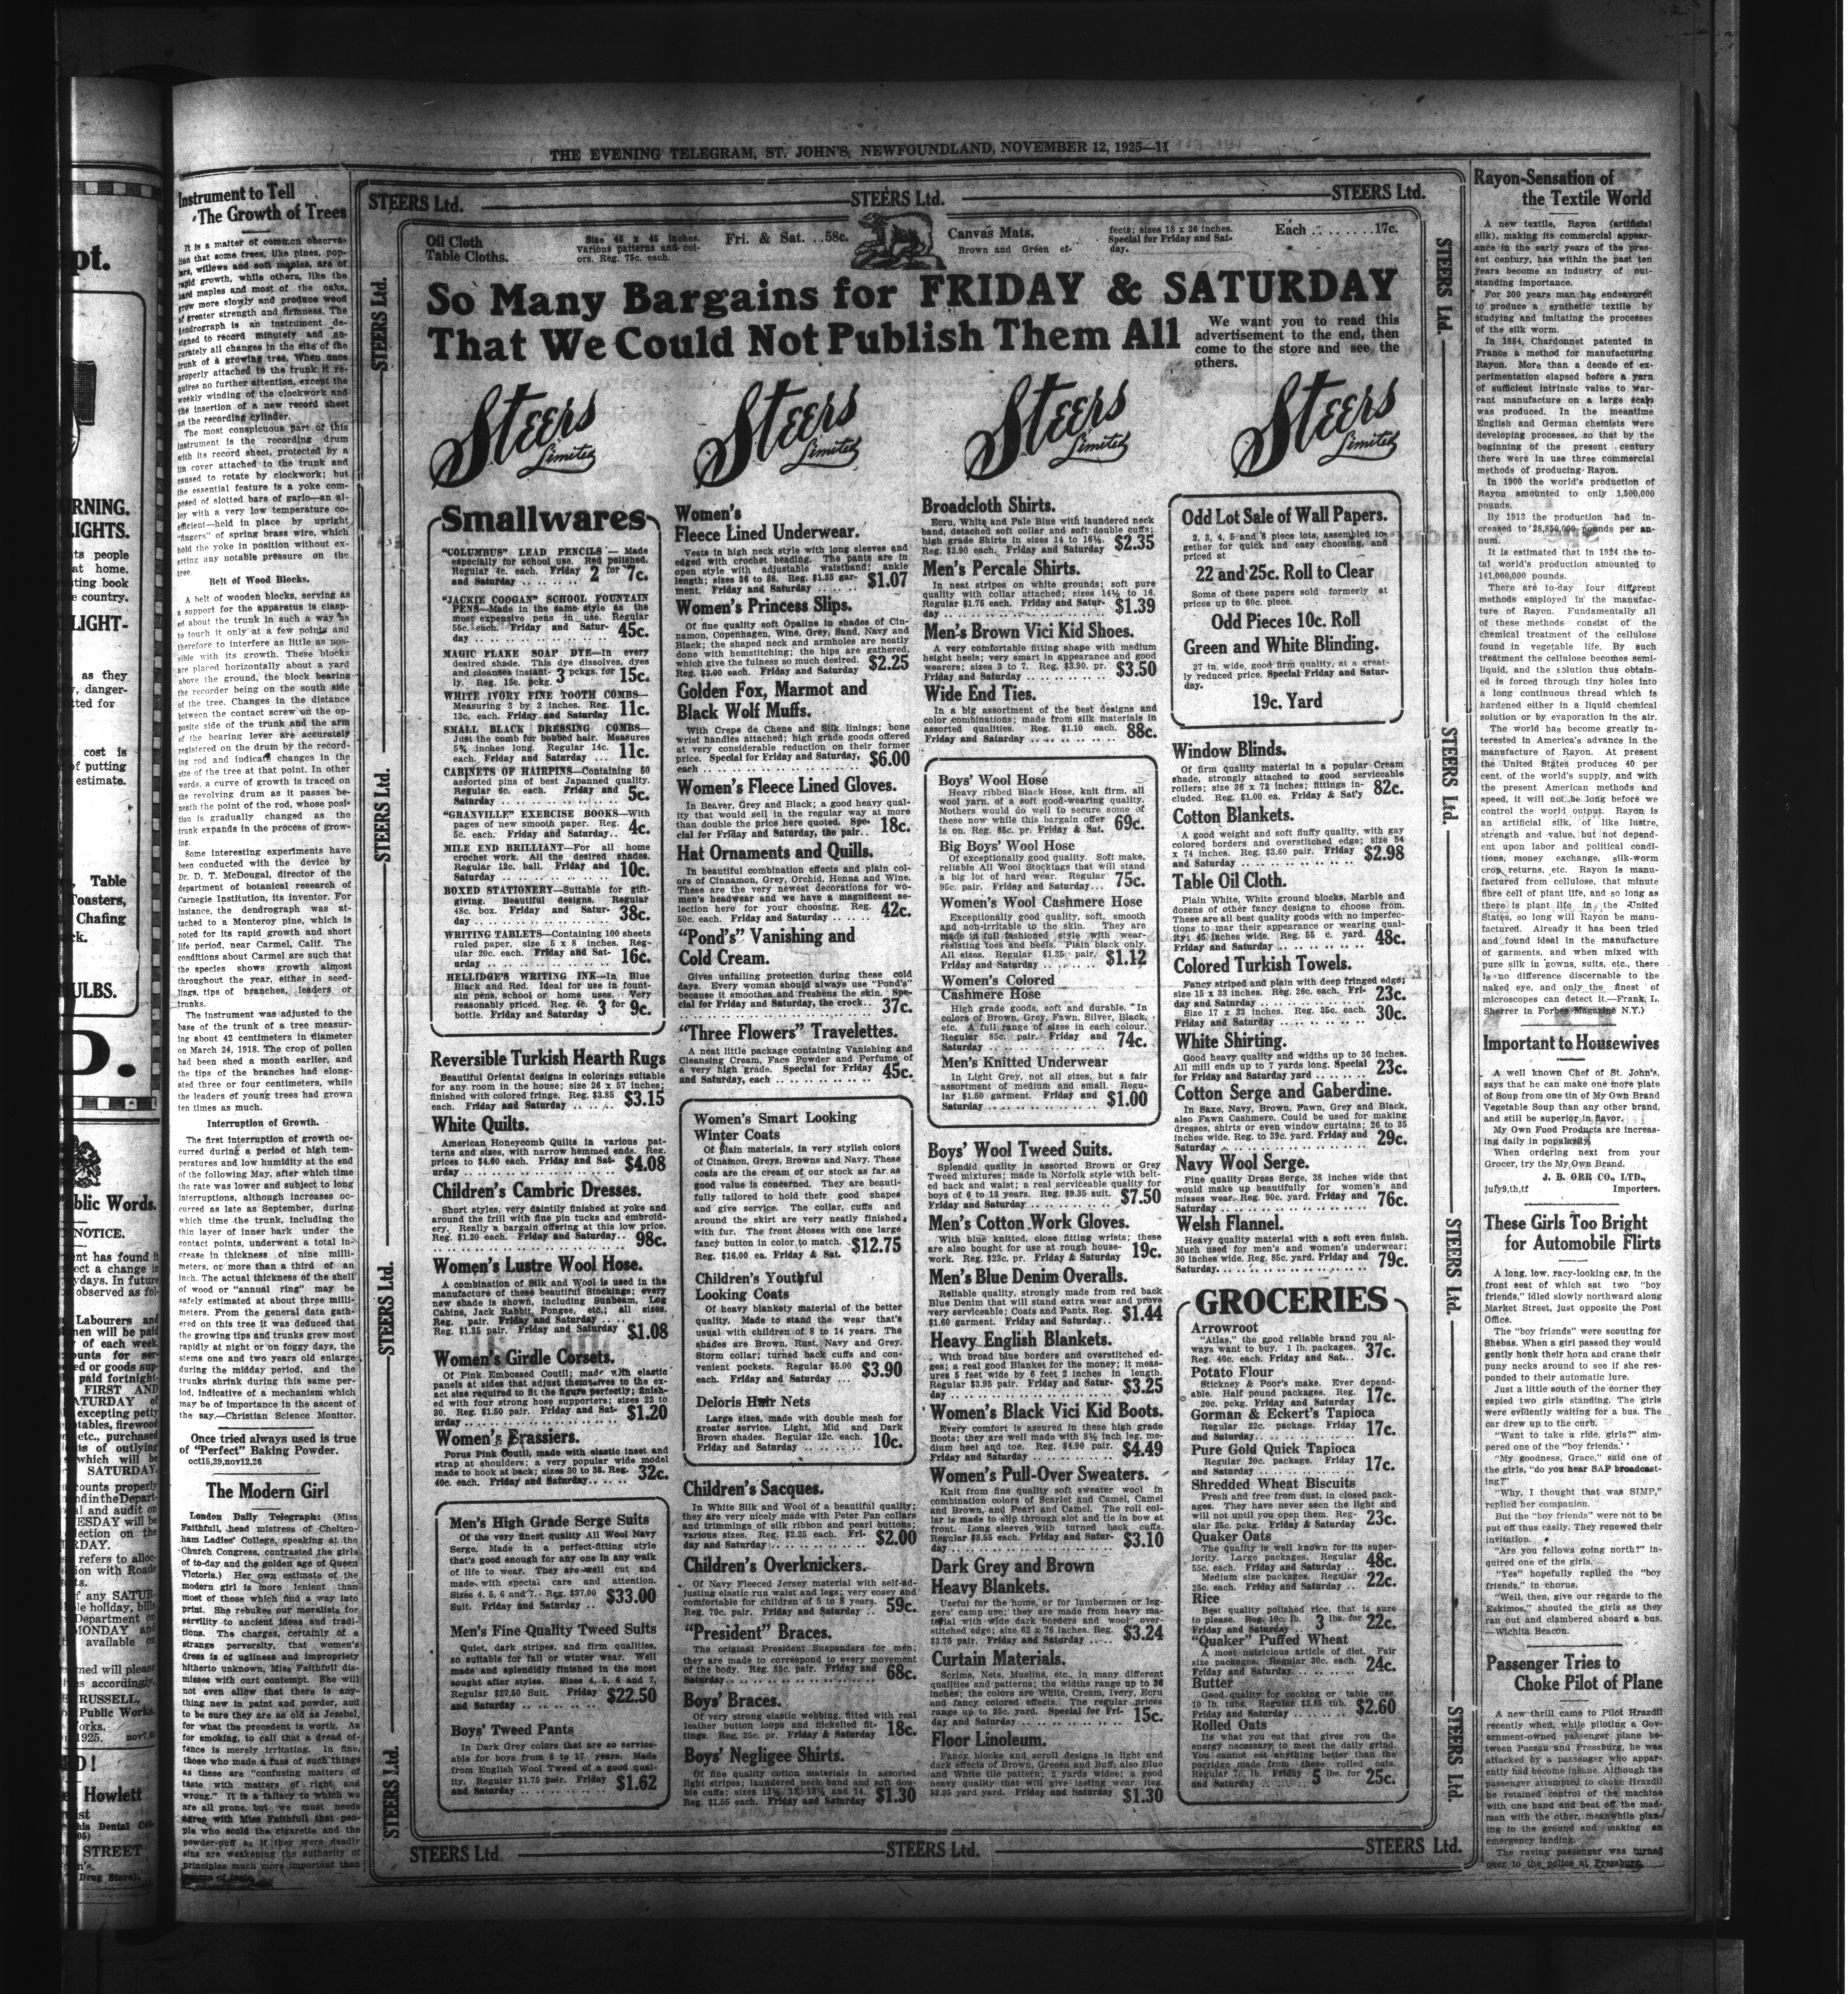 THE EVENING TELEGRAM, ST. JOHN'S, NEWFOUNDLAND, NOVEMBER 12, 1925—11
Instrument to Tell
The Growth of Trees
It is a matter of common observa-
tion that some trees, like pines, pop-
lars, willows and soft maples, are of
rapid growth, while others, like the
hard maples and most of the oaks,
grow more slowly and produce wood
of greater strength and firmness. The
dendrograph is an instrument de-
signed to record minutely and ac-
curately all changes in the size of the
trunk of a growing tree. When once
properly attached to the trunk it re-
quires no further attention, except the
weekly winding of the clockwork and
the insertion of a new record sheet
on the recording cylinder.
The most conspicuous part of this
instrument is the recording drum
with its record sheet, protected by a
tin cover attached to the trunk and
caused to rotate by clockwork; but
the essential feature is a yoke com-
posed of slotted bars of gario—an al-
loy with a very low temperature co-
efficient—held in place by upright
"fingers" of spring brass wire, which
hold the yoke in position without ex-
erting any notable pressure on the
tree.
Belt of Wood Blocks.
A belt of wooden blocks, serving as
a support for the apparatus is clasp-
ed about the trunk in such a way as
to touch it only at a few points and
therefore to interfere as little as pos-
sible with its growth. These blocks
are placed horizontally about a yard
above the ground, the block bearing
the recorder being on the south side
of the tree. Changes in the distance
between the contact screw on the op-
posite side of the trunk and the arm
of the bearing lever are accurately
registered on the drum by the record-
ing rod and indicate changes in the
size of the tree at that point. In other
words, a curve of growth is traced on
the revolving drum as it passes be-
neath the point of the rod, whose posi-
tion is gradually changed as the
trunk expands in the process of grow-
ing.
Some interesting experiments have
been conducted with the device by
Dr. D. T. McDougal, director of the
department of botanical research of
Carnegie Institution, its inventor. For
instance, the dendrograph was at-
tached to a Monterey pine, which is
noted for its rapid growth and short
life period, near Carmel, Calif. The
conditions about Carmel are such that
the species shows growth almost
throughout the year, either in seed-
lings, tips of branches, leaders or
trunks.
The instrument was adjusted to the
base of the trunk of a tree measur-
ing about 42 centimeters in diameter
on March 24, 1918. The crop of pollen
had been shed a month earlier, and
the tips of the branches had elong-
ated three or four centimeters, while
the leaders of young trees had grown
ten times as much.
Interruption of Growth.
The first interruption of growth oc-
curred during a period of high tem-
peratures and low humidity at the end
of the following May, after which time
the rate was lower and subject to long
interruptions, although increases oc-
curred as late as September, during
which time the trunk, including the
thin layer of inner bark under the
contact points, underwent a total in-
crease in thickness of nine milli-
meters, or more than a third of an
inch. The actual thickness of the shell
of wood or "annual ring" may be
safely estimated at about three milli-
meters. From the general data gath-
ered on this tree it was deduced that
the growing tips and trunks grew most
rapidly at night or on foggy days, the
stems one and two years old enlarge
during the midday period, and the
trunks shrink during this same per-
iod, indicative of a mechanism which
may be of importance in the ascent of
the say.—Christian Science Monitor.
Once tried always used is true
of "Perfect" Baking Powder.
oct15,29,nov12,26
The Modern Girl
London Daily Telegraph: (Miss
Faithfull, head mistress of Chelten-
ham Ladies' College, speaking at the
Church Congress, contrasted the girls
of to-day and the golden age of Queen
Victoria.) Her own estimate of the
modern girl is more lenient than
most of those which find a way into
print. She rebukes our moralists for
servility to ancient ideas and tradi-
tions. The charges, certainly of a
strange perversity, that women's
dress is of ugliness and impropriety
hitherto unknown, Miss Faithfull dis-
misses with curt contempt. She will
not even allow that there is any-
thing new in paint and powder, and
to be sure they are as old as Jesebel,
for what the precedent is worth. As
for smoking, to call that a dread of-
fence is merely irritating. In fine,
those who made a fuss of such things
as these are "confusing matters of
taste with matters of right and
wrong." It is a fallacy to which we
are all prone, but we must needs
agree with Miss Faithfull that peo-
ple who scold the cigarette and the
powder-puff as if they were deadly
sins are weakening the authority of
principles much more important than
STEERS Ltd.
STEERS Ltd.
STEERS Ltd.
Oil Cloth
Table Cloths.
Size 45 x 45 inches.
Various patterns and col-
ors. Reg. 75c. each.
Fri. & Sat. ..58c.
Canvas Mats.
Brown and Green ef-
fects; sizes 18 x 36 inches.
Special for Friday and Sat-
day.
Each ........17c.
So Many Bargains for FRIDAY & SATURDAY
That We Could Not Publish Them All
We want you to read this
advertisement to the end, then
come to the store and see the
others.
Steers Limited
Steers Limited
Steers Limited
Steers Limited
Smallwares
"COLUMBUS" LEAD PENCILS — Made
especially for school use. Red polished.
Regular 4c. each. Friday
and Saturday .......... 2 for 7c.
"JACKIE COOGAN" SCHOOL FOUNTAIN
PENS—Made in the same style as the
most expensive pens in use. Regular
55c. each. Friday and Satur-
day .................. 45c.
MAGIC FLAKE SOAP DYE—In every
desired shade. This dye dissolves, dyes
and cleanses instant-
ly. Reg. 15c. pckg. 3 pckgs. for 15c.
WHITE IVORY FINE TOOTH COMBS—
Measuring 3 by 2 inches. Reg.
13c. each. Friday and Saturday 11c.
SMALL BLACK DRESSING COMBS—
Just the comb for bobbed hair. Measures
5¾ inches long. Regular 14c.
each. Friday and Saturday ... 11c.
CABINETS OF HAIRPINS—Containing 50
assorted pins of best Japanned quality.
Regular 6c. each. Friday and
Saturday .............. 5c.
"GRANVILLE" EXERCISE BOOKS—With
pages of new smooth paper. Reg.
5c. each. Friday and Saturday.. 4c.
MILE END BRILLIANT—For all home
crochet work. All the desired shades.
Regular 12c. ball. Friday and
Saturday .............. 10c.
BOXED STATIONERY—Suitable for gift-
giving. Beautiful designs. Regular
48c. box. Friday and Satur-
day .................. 38c.
WRITING TABLETS—Containing 100 sheets
ruled paper, size 5 x 8 inches. Reg-
ular 20c. each. Friday and Sat-
urday ................ 16c.
HELLIDGE'S WRITING INK—In Blue
Black and Red. Ideal for use in fount-
ain pens, school or home uses. Very
reasonably priced. Reg. 4c.
bottle. Friday and Saturday 3 for 9c.
Reversible Turkish Hearth Rugs
Beautiful Oriental designs in colorings suitable
for any room in the house; size 26 x 57 inches;
finished with colored fringe. Reg. $3.85
each. Friday and Saturday ...... $3.15
White Quilts.
American Honeycomb Quilts in various pat-
terns and sizes, with narrow hemmed ends. Reg.
prices to $4.60 each. Friday and Sat-
urday ................ $4.08
Children's Cambric Dresses.
Short styles, very daintily finished at yoke and
around the frill with fine pin tucks and embroid-
ery. Really a bargain offering at this low price.
Reg. $1.20 each. Friday and Saturday..
.................. 98c.
Women's Lustre Wool Hose.
A combination of Silk and Wool is used in the
manufacture of these beautiful Stockings; every
new shade is shown, including Sunbeam, Log
Cabine, Jack Rabbit, Pongee, etc.; all sizes.
Reg. pair. Friday and Saturday ...
Reg. $1.35 pair. Friday and Saturday $1.08
Women's Girdle Corsets.
Of Pink Embossed Coutil; made with elastic
panels at sides that adjust themselves to the ex-
act sizes required to fit the figure perfectly; finish-
ed with four strong hose supporters; sizes 22 to
30. Reg. $1.50 pair. Friday and Sat-
urday ................ $1.20
Women's Brassiers.
Porus Pink Coutil, made with elastic inset and
strap at shoulders; a very popular wide model
made to hook at back; sizes 30 to 38. Reg.
40c. each. Friday and Saturday.... 32c.
Men's High Grade Serge Suits
Of the very finest quality All Wool Navy
Serge. Made in a perfect-fitting style
that's good enough for any one in any walk
of life to wear. They are well cut and
made with special care and attention.
Sizes 4, 5, 6 and 7. Reg. $37.90
Suit. Friday and Saturday .. $33.00
Men's Fine Quality Tweed Suits
Quiet, dark stripes, and firm qualities,
so suitable for fall or winter wear. Well
made and splendidly finished in the most
sought after styles. Sizes 4, 5, 6 and 7.
Regular $27.50 Suit. Friday
and Saturday .......... $22.50
Boys' Tweed Pants
In Dark Grey colors that are so service-
able for boys from 8 to 17 years. Made
from English Wool Tweed of a good qual-
ity. Regular $1.75 pair. Friday
and Saturday .......... $1.62
Women's
Fleece Lined Underwear.
Vests in high neck style with long sleeves and
edged with crochet beading. The pants are in
open style with adjustable waistband; ankle
length; sizes 36 to 38. Reg. $1.35 gar-
ment. Friday and Saturday ...... $1.07
Women's Princess Slips.
Of fine quality soft Opaline in shades of Cin-
namon, Copenhagen, Wine, Grey, Sand, Navy and
Black; the shaped neck and armholes are neatly
done with hemstitching; the hips are gathered,
which give the fulness so much desired.
Reg. $3.00 each. Friday and Saturday $2.25
Golden Fox, Marmot and
Black Wolf Muffs.
With Crepe de Chene and Silk linings; bone
wrist handles attached; high grade goods offered
at very considerable reduction on their former
price. Special for Friday and Saturday,
each .................. $6.00
Women's Fleece Lined Gloves.
In Beaver, Grey and Black; a good heavy qual-
ity that would sell in the regular way at more
than double the price here quoted. Spe-
cial for Friday and Saturday, the pair.. 18c.
Hat Ornaments and Quills.
In beautiful combination effects and plain col-
ors of Cinnamon, Grey, Orchid, Henna and Wine.
These are the very newest decorations for wo-
men's headwear and we have a magnificent se-
lection here for your choosing. Reg.
50c. each. Friday and Saturday ...... 42c.
"Pond's" Vanishing and
Cold Cream.
Gives unfailing protection during these cold
days. Every woman should always use "Pond's"
because it smoothes and freshens the skin. Spe-
cial for Friday and Saturday, the crock..
.................. 37c.
"Three Flowers" Travelettes.
A neat little package containing Vanishing and
Cleansing Cream, Face Powder and Perfume of
a very high grade. Special for Friday
and Saturday, each .............. 45c.
Women's Smart Looking
Winter Coats
Of plain materials, in very stylish colors
of Cinamon, Greys, Browns and Navy. These
coats are the cream of our stock as far as
good value is concerned. They are beauti-
fully tailored to hold their good shapes
and give service. The collar, cuffs and
around the skirt are very neatly finished
with fur. The front closes with one large
fancy button in color to match.
Reg. $16.00 ea. Friday & Sat. $12.75
Children's Youthful
Looking Coats
Of heavy blankety material of the better
quality. Made to stand the wear that's
usual with children of 8 to 14 years. The
shades are Brown, Rust, Navy and Grey.
Storm collar; turned back cuffs and con-
venient pockets. Regular $5.00
each. Friday and Saturday ... $3.90
Deloris Hair Nets
Large sizes, made with double mesh for
greater service. Light, Mid and Dark
Brown shades. Regular 12c. each.
Friday and Saturday .......... 10c.
Children's Sacques.
In White Silk and Wool of a beautiful quality;
they are very nicely made with Peter Pan collars
and trimmings of silk ribbon and pearl buttons;
various sizes. Reg. $2.25 each. Fri-
day and Saturday .............. $2.00
Children's Overknickers.
Of Navy Fleeced Jersey material with self-ad-
justing elastic-run waist and legs; very cosey and
comfortable for children of 5 to 8 years.
Reg. 70c. pair. Friday and Saturday .. 59c.
"President" Braces.
The original President Suspenders for men;
they are made to correspond to every movement
of the body. Reg. 85c. pair. Friday and
Saturday.................. 68c.
Boys' Braces.
Of very strong elastic webbing, fitted with real
leather button loops and nickelled fit-
tings. Reg. 25c. pr. Friday & Saturday 18c.
Boys' Negligee Shirts.
Of fine quality cotton materials in assorted
light stripes; laundered neck band and soft dou-
ble cuffs; sizes 12½, 13, 13½ and 14.
Reg. $1.55 each. Friday and Saturday $1.30
Broadcloth Shirts.
Ecru, White and Pale Blue with laundered neck
band, detached soft collar and soft double cuffs;
high grade Shirts in sizes 14 to 16½.
Reg. $2.90 each. Friday and Saturday $2.35
Men's Percale Shirts.
In neat stripes on white grounds; soft pure
quality with collar attached; sizes 14½ to 16.
Regular $1.75 each. Friday and Satur-
day .................. $1.39
Men's Brown Vici Kid Shoes.
A very comfortable fitting shape with medium
height heels; very smart in appearance and good
wearers; sizes 3 to 7. Reg. $3.90. pr.
Friday and Saturday .............. $3.50
Wide End Ties.
In a big assortment of the best designs and
color combinations; made from silk materials in
assorted qualities. Reg. $1.10 each.
Friday and Saturday .............. 88c.
Boys' Wool Hose
Heavy ribbed Black Hose, knit firm, all
wool yarn, of a soft good-wearing quality.
Mothers would do well to secure some of
these now while this bargain offer
is on. Reg. 85c. pr. Friday & Sat. 69c.
Big Boys' Wool Hose
Of exceptionally good quality. Soft make,
reliable All Wool Stockings that will stand
a big lot of hard wear. Regular
95c. pair. Friday and Saturday... 75c.
Women's Wool Cashmere Hose
Exceptionally good quality, soft, smooth
and non-irritable to the skin. They are
made in full fashioned style with wear-
resisting toes and heels. Plain black only.
All sizes. Regular $1.35 pair.
Friday and Saturday .......... $1.12
Women's Colored
Cashmere Hose
High grade goods, soft and durable. In
colors of Brown, Grey, Fawn, Silver, Black,
etc. A full range of sizes in each colour.
Regular 85c. pair. Friday and
Saturday .............. 74c.
Men's Knitted Underwear
In Light Grey, not all sizes, but a fair
assortment of medium and small. Regu-
lar $1.50 garment. Friday and
Saturday .............. $1.00
Boys' Wool Tweed Suits.
Splendid quality in assorted Brown or Grey
Tweed mixtures; made in Norfolk style with belt-
ed back and waist; a real serviceable quality for
boys of 6 to 13 years. Reg. $9.35 suit.
Friday and Saturday .............. $7.50
Men's Cotton Work Gloves.
With blue knitted, close fitting wrists; these
are also bought for use at rough house-
work. Reg. $23c. pr. Friday & Saturday 19c.
Men's Blue Denim Overalls.
Reliable quality, strongly made from red back
Blue Denim that will stand extra wear and prove
very serviceable; Coats and Pants. Reg.
$1.60 garment. Friday and Saturday .. $1.44
Heavy English Blankets.
With broad blue borders and overstitched ed-
ges; a real good Blanket for the money; it meas-
ures 5 feet wide by 6 feet 2 inches in length.
Regular $3.95 pair. Friday and Satur-
day .................. $3.25
Women's Black Vici Kid Boots.
Every comfort is assured in these high grade
Boots; they are well made with 8½ inch leg, me-
dium heel and toe. Reg. $4.90 pair.
Friday and Saturday .............. $4.49
Women's Pull-Over Sweaters.
Knit from fine quality soft sweater wool in
combination colors of Scarlet and Camel, Camel
and Brown, and Pearl and Camel. The roll col-
lar is made to slip through slot and tie in bow at
front. Long sleeves with turned back cuffs.
Regular $3.55 each. Friday and Satur-
day .................. $3.10
Dark Grey and Brown
Heavy Blankets.
Useful for the home, or for lumbermen or log-
gers' camp use; they are made from heavy ma-
terial with wide dark borders and wool over-
stitched edge; size 62 x 76 inches. Reg.
$3.75 pair. Friday and Saturday .... $3.24
Curtain Materials.
Scrims, Nets, Muslins, etc., in many different
qualities and patterns; the widths range up to 36
inches; the colors are White, Cream, Ivory, Ecru
and fancy colored effects. The regular prices
range up to 25c. yard. Special for Fri-
day and Saturday .............. 15c.
Floor Linoleum.
Fancy blocks and scroll designs in light and
dark effects of Brown, Greeen and Buff; also Blue
and White tile pattern; 2 yards wide; a good
heavy quality that will give lasting wear. Reg.
$2.25 yard yard. Friday and Saturday $1.30
Odd Lot Sale of Wall Papers.
2, 3, 4, 5 and 6 piece lots, assembled to-
gether for quick and easy choosing, and
priced at
22 and 25c. Roll to Clear
Some of these papers sold formerly at
prices up to 60c. piece.
Odd Pieces 10c. Roll
Green and White Blinding.
27 in. wide, good firm quality, at a great-
ly reduced price. Special Friday and Satur-
day.
19c. Yard
Window Blinds.
Of firm quality material in a popular Cream
shade, strongly attached to good serviceable
rollers; size 36 x 72 inches; fittings in-
cluded. Reg. $1.00 ea. Friday & Sat'y 82c.
Cotton Blankets.
A good weight and soft fluffy quality, with gay
colored borders and overstitched edge; size 54
x 74 inches. Reg. $3.60 pair. Friday
and Saturday .................. $2.98
Table Oil Cloth.
Plain White, White ground blocks, Marble and
dozens of other fancy designs to choose from.
These are all best quality goods with no imperfec-
tions to mar their appearance or wearing qual-
ity; 45 inches wide. Reg. 55 c. yard.
Friday and Saturday .............. 48c.
Colored Turkish Towels.
Fancy striped and plain with deep fringed edge;
size 15 x 33 inches. Reg. 26c. each. Fri-
day and Saturday .............. 23c.
Size 17 x 33 inches. Reg. 35c. each.
Friday and Saturday .............. 30c.
White Shirting.
Good heavy quality and widths up to 36 inches.
All mill ends up to 7 yards long. Special
for Friday and Saturday yard ...... 23c.
Cotton Serge and Gaberdine.
In Saxe, Navy, Brown, Fawn, Grey and Black,
also Fawn Cashmere. Could be used for making
dresses, shirts or even window curtains; 26 to 35
inches wide. Reg. to 39c. yard. Friday and
Saturday.................. 29c.
Navy Wool Serge.
Fine quality Dress Serge, 38 inches wide that
would make up beautifully for women's and
misses wear. Reg. 90c. yard. Friday and
Saturday.................. 76c.
Welsh Flannel.
Heavy quality material with a soft even finish.
Much used for men's and women's underwear;
30 inches wide. Reg. 85c. yard. Friday and
Saturday.................. 79c.
GROCERIES
Arrowroot
"Atlas," the good reliable brand you al-
ways want to buy. 1 lb. packages.
Reg. 40c. each. Friday and Sat... 37c.
Potato Flour
Stickney & Poor's make. Ever depend-
able. Half pound packages. Reg.
20c. pckg. Friday and Saturday .. 17c.
Gorman & Eckert's Tapioca
Regular 22c. package. Friday
and Saturday.............. 17c.
Pure Gold Quick Tapioca
Regular 20c. package. Friday
and Saturday .............. 17c.
Shredded Wheat Biscuits
Fresh and free from dust, in closed pack-
ages. They have never seen the light and
will not until you open them. Reg-
ular 25c. pckg. Friday & Saturday 23c.
Quaker Oats
The quality is well known for its super-
iority. Large packages. Regular
55c. each. Friday and Saturday .. 48c.
Medium size packages. Regular
25c. each. Friday and Saturday .. 22c.
Rice
Best quality polished rice, that is sure
to please. Reg. 10c. lb.
Friday and Saturday .... 3 lbs. for 22c.
"Quaker" Puffed Wheat
A most nutricious article of diet. Fair
size packages. Regular 30c. each.
Friday and Saturday .......... 24c.
Butter
Good quality for cooking or table use.
10 lb. tubs. Regular $2.85 tub.
Friday and Saturday .......... $2.60
Rolled Oats
Its what you eat that gives you the
energy necessary to meet the daily grind.
You cannot eat anything better than the
porridge made from these rolled oats.
Regular 7c. lb. Friday
and Saturday ...... 5 lbs. for 25c.
STEERS Ltd.
STEERS Ltd.
STEERS Ltd.
STEERS Ltd.
STEERS Ltd.
STEERS Ltd.
STEERS Ltd.
STEERS Ltd.
STEERS Ltd.
STEERS Ltd.
STEERS Ltd.
Rayon-Sensation of
the Textile World
A new textile, Rayon (artificial
silk), making its commercial appear-
ance in the early years of the pres-
ent century, has within the past ten
years become an industry of out-
standing importance.
For 200 years man has endeavored
to produce a synthetic textile by
studying and imitating the processes
of the silk worm.
In 1884, Chardonnet patented in
France a method for manufacturing
Rayon. More than a decade of ex-
perimentation elapsed before a yarn
of sufficient intrinsic value to war-
rant manufacture on a large scale
was produced. In the meantime
English and German chemists were
developing processes, so that by the
beginning of the present century
there were in use three commercial
methods of producing Rayon.
In 1900 the world's production of
Rayon amounted to only 1,500,000
pounds.
By 1913 the production had in-
creased to 28,850,000 pounds per an-
num.
It is estimated that in 1924 the to-
tal world's production amounted to
141,000,000 pounds.
There are to-day four different
methods employed in the manufac-
ture of Rayon. Fundamentally all
of these methods consist of the
chemical treatment of the cellulose
found in vegetable life. By such
treatment the cellulose becomes semi-
liquid, and the solution thus obtain-
ed is forced through tiny holes into
a long continuous thread which is
hardened either in a liquid chemical
solution or by evaporation in the air.
The world has become greatly in-
terested in America's advance in the
manufacture of Rayon. At present
the United States produces 40 per
cent. of the world's supply, and with
the present American methods and
speed, it will not be long before we
control the world output. Rayon is
an artificial silk, of like lustre,
strength and value, but not depend-
ent upon labor and political condi-
tions, money exchange, silk-worm
crop returns, etc. Rayon is manu-
factured from cellulose, that minute
fibre cell of plant life, and so long as
there is plant life in the United
States, so long will Rayon be manu-
factured. Already it has been tried
and found ideal in the manufacture
of garments, and when mixed with
pure silk in gowns, suits, etc., there
is no difference discernable to the
naked eye, and only the finest of
microscopes can detect it.—Frank L.
Sherrer in Forbes Magazine N.Y.)
Important to Housewives
A well known Chef of St. John's,
says that he can make one more plate
of Soup from one tin of My Own Brand
Vegetable Soup than any other brand,
and still be superior in flavor.
My Own Food Products are increas-
ing daily in popularity.
When ordering next from your
Grocer, try the My Own Brand.
J. B. ORR CO., LTD.,
july9,th,tf Importers.
These Girls Too Bright
for Automobile Flirts
A long, low, racy-looking car, in the
front seat of which sat two "boy
friends," idled slowly northward along
Market Street, just opposite the Post
Office.
The "boy friends" were scouting for
Shebas. When a girl passed they would
gently honk their horn and crane their
puny necks around to see if she res-
ponded to their automatic lure.
Just a little south of the corner they
espied two girls standing. The girls
were evidently waiting for a bus. The
car drew up to the curb.
"Want to take a ride, girls?" sim-
pered one of the "boy friends."
"My goodness, Grace," said one of
the girls, "do you hear SAP broadcast-
ing?"
"Why, I thought that was SIMP,"
replied her companion.
But the "boy friends" were not to be
put off thus easily. They renewed their
invitation.
"Are you fellows going north?" in-
quired one of the girls.
"Yes" hopefully replied the "boy
friends," in chorus.
"Well, then, give our regards to the
Eskimos," shouted the girls as they
ran out and clambered aboard a bus.
—Wichita Beacon.
Passenger Tries to
Choke Pilot of Plane
A new thrill came to Pilot Hrazdil
recently when, while piloting a Gov-
ernment-owned passenger plane be-
tween Passau and Pressburg, he was
attacked by a passenger who appar-
ently had become insane. Although the
passenger attempted to choke Hrazdil
he retained control of the machine
with one hand and beat off the mad-
man with the other, meanwhile plan-
ing to the ground and making an
emergency landing.
The raving passenger was turned
over to the police at Pressburg.